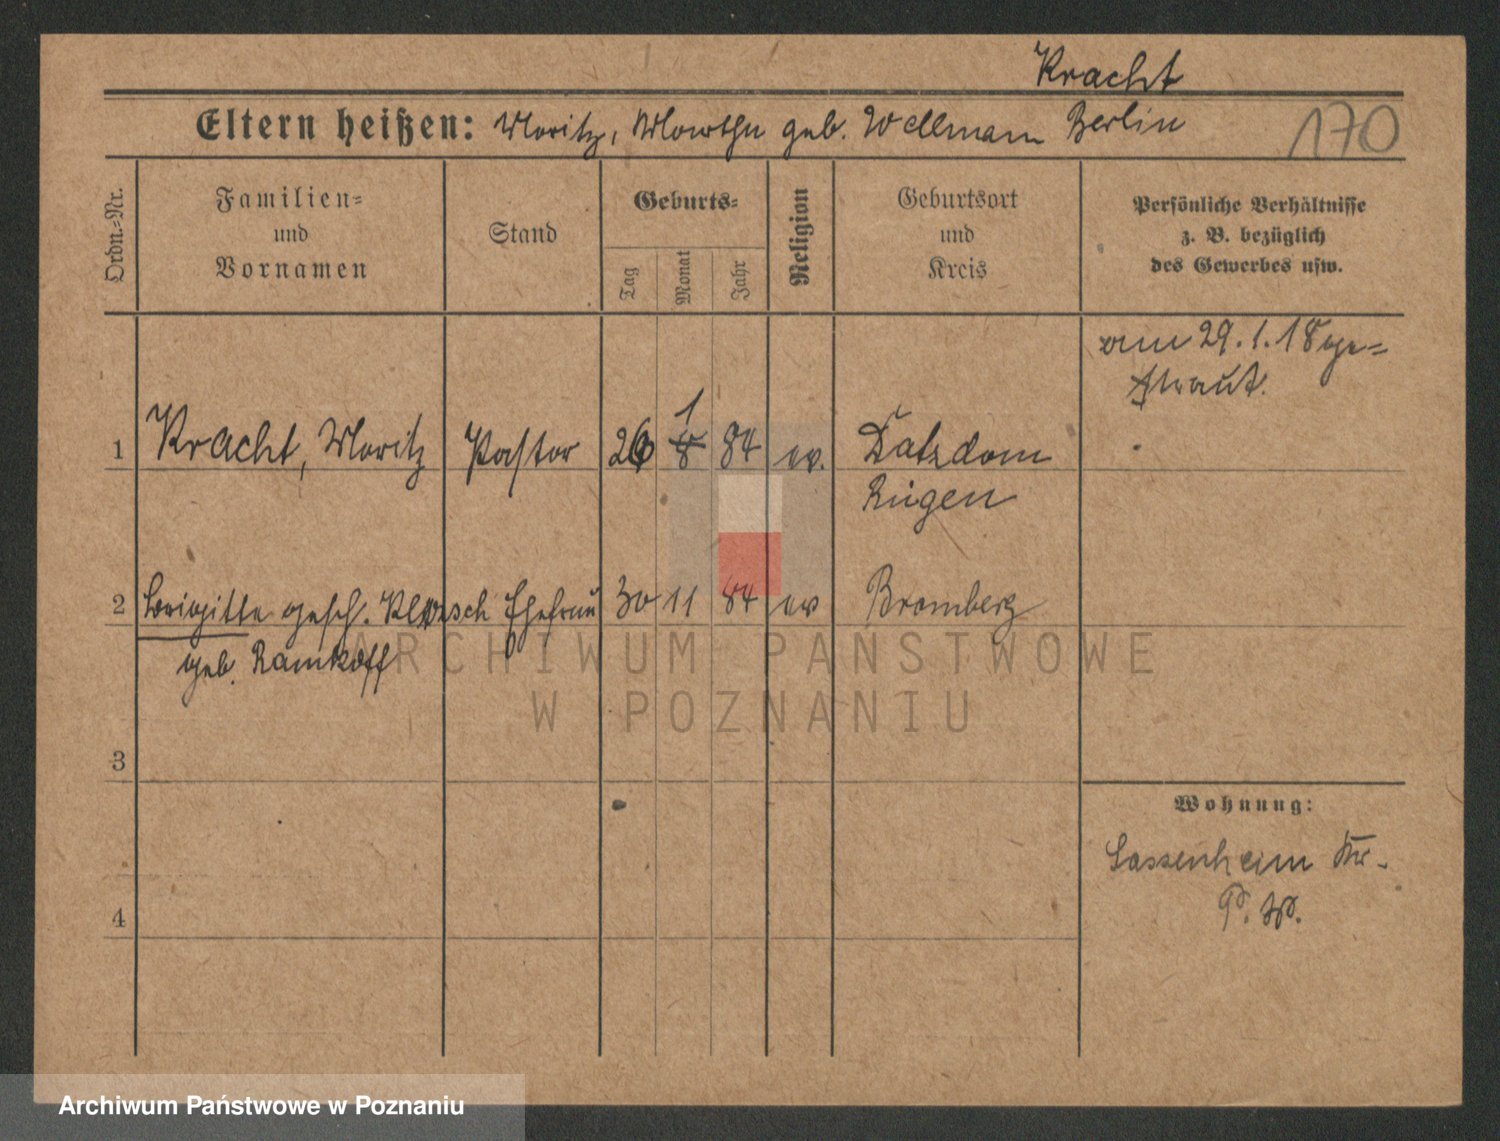 Kracht
Eltern heißen: Moritz, Martha geb. Wellmann Berlin
170
Ordn.-Nr.
Familien-
und
Vornamen
Stand
Geburts-
Tag
Monat
Jahr
Religion
Geburtsort
und
Kreis
Persönliche Verhältnisse
z. B. bezüglich
des Gewerbes usw.
am 29.1.18 ge-
traut.
1
1 Kracht, Moritz Pastor 26 8 84 ev.
Rügen
2 Brigitte gesch. Ehefrau 30 11 84 ev Bromberg
geb. Ramkoff
3
4
Wohnung:
Sassenheim Kr.
P. W.
ARCHIWUM PAŃSTWOWE
W POZNANIU
Archiwum Państwowe w Poznaniu